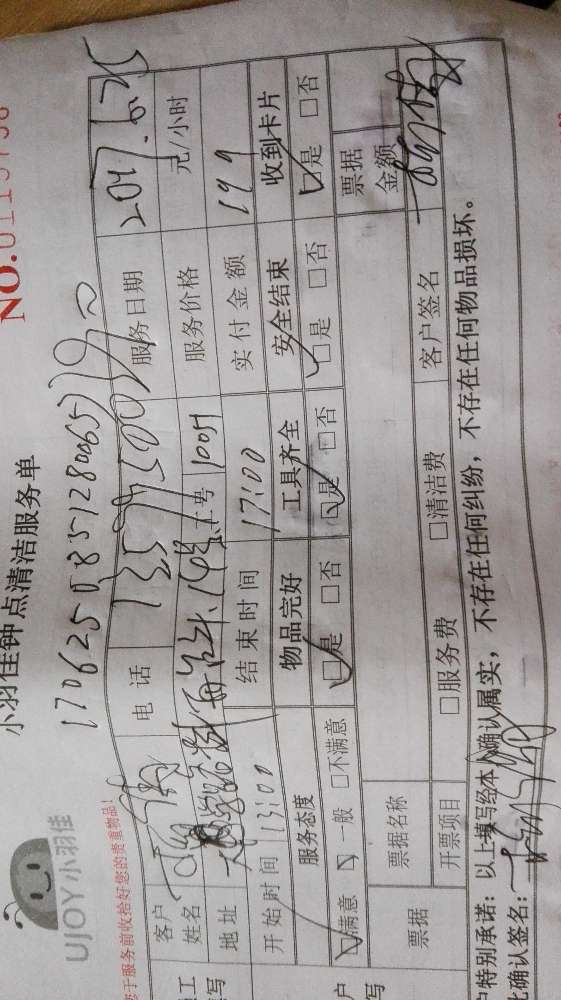 NO.0113758
小羽佳钟点清洁服务单
170625085128006533
UJOY小羽佳
您于服务前收拾好您的贵重物品!
客户姓名 电话 服务日期 2017.6.25
地址 工号 10011 服务价格 元/小时
开始时间 13:00 结束时间 17:00 实付金额 199
服务态度 物品完好 工具齐全 安全结束 收到卡片
☑满意 □一般 □不满意 ☑是 □否 ☑是 □否 ☑是 □否 ☑是 □否
票据 票据名称 票据金额
开票项目 □服务费 □清洁费 客户签名
户特别承诺:以上填写经本人确认属实,不存在任何纠纷,不存在任何物品损坏。
此确认签名: